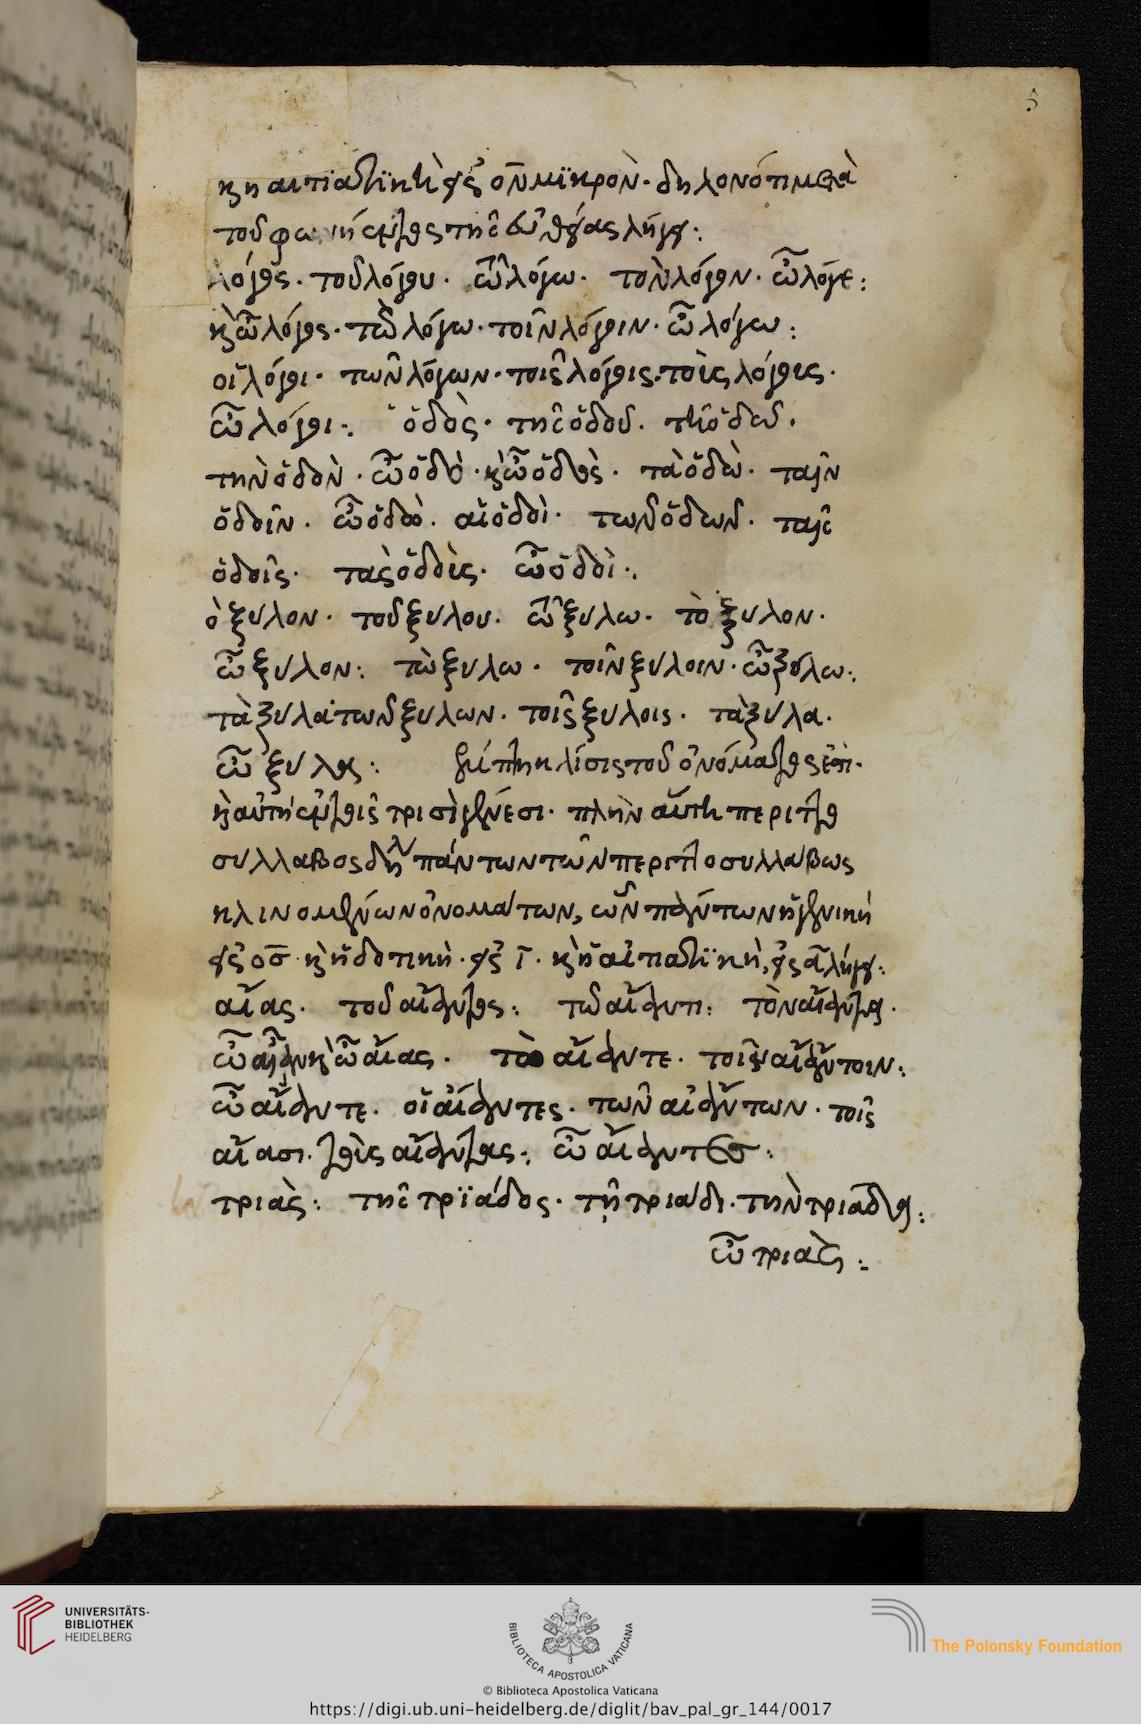 5
κ η αιτϊατϊκὴ εἰς ὂν μϊκρὸν· δηλονότι μετὰ
τοῦ φωνήεντος τῆς εὐθείας λήγει:
λόγος· τοῦ λόγου· τῶ λόγω· τὸν λόγον· ὦ λόγε:
κ ὦ λόγος· τὼ λόγω· τοῖν λόγοιν· ὦ λόγω:
οἱ λόγοι· τῶν λόγων· τοῖς λόγοις· τοὺς λόγους·
ὦ λόγοι·. ὁδὸς· τῆς ὁδοῦ· τῆ ὁδῶ·
τὴν ὁδὸν· ὦ ὁδὲ· κ ὦ ὁδὸς· τὰ ὁδὼ· ταῖν
ὁδοῖν· ὦ ὁδὼ· αἱ ὁδοὶ· τῶν ὁδῶν· ταῖς
ὁδοῖς· τὰς ὁδοὺς· ὦ ὁδοὶ·.
ὸ ξυλον· τοῦ ξυλου· τῶ ξυλω· τὸ ξυλον·
ὦ ξυλον: τὼ ξυλω· τοῖν ξυλοιν· ὦ ξύλω:
τὰ ξυλα· τῶν ξυλων· τοῖς ξυλοις· τὰ ξυλα·
ὦ ξυλα: πέμπτη κλίσις τοῦ ὀνόματος ἐστι·
κ αὐτὴ ἐν τοῖς τρισὶ γένεσι· πλὴν αὕτη περιττο
συλλαβος δὴλ πάντων τῶν περιττοσυλλάβως
κλινομένων ὀνομάτων, ὧν πάντων ἡ γενικὴ
εἰς ος· κ ἡ δοτικὴ· εἰς ι· κ ἡ αἰτιατϊκὴ, εἰς α λήγει:
αἴας· τοῦ αἴαντος: τῶ αἴαντι: τὸν αἴαντα·
ὦ αἶαν κ ὦ αἴας· τὼ αἴαντε· τοῖν αἰάντοιν:
ὦ αἴαντε· οἱ αἴαντες· τῶν αἰάντων· τοῖς
αἴασι· τοὺς αἴαντας: ὦ αἴαντες:
τριὰς: τῆς τρϊάδος· τῆ τριάδι· τὴν τριάδα:
ὦ τριὰς:
UNIVERSITÄTS-
BIBLIOTHEK
HEIDELBERG
BIBLIOTECA APOSTOLICA VATICANA
The Polonsky Foundation
© Biblioteca Apostolica Vaticana
https://digi.ub.uni-heidelberg.de/diglit/bav_pal_gr_144/0017